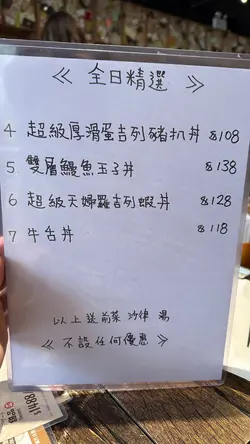 ≪ 全日精選 ≫
4 超級厚滑蛋吉列豬扒丼 $108
5 雙層鰻魚玉子丼 $138
6 超級天婦羅吉列蝦丼 $128
7 牛舌丼 $118
以上送前菜 沙律 湯
≪ 不設任何優惠 ≫